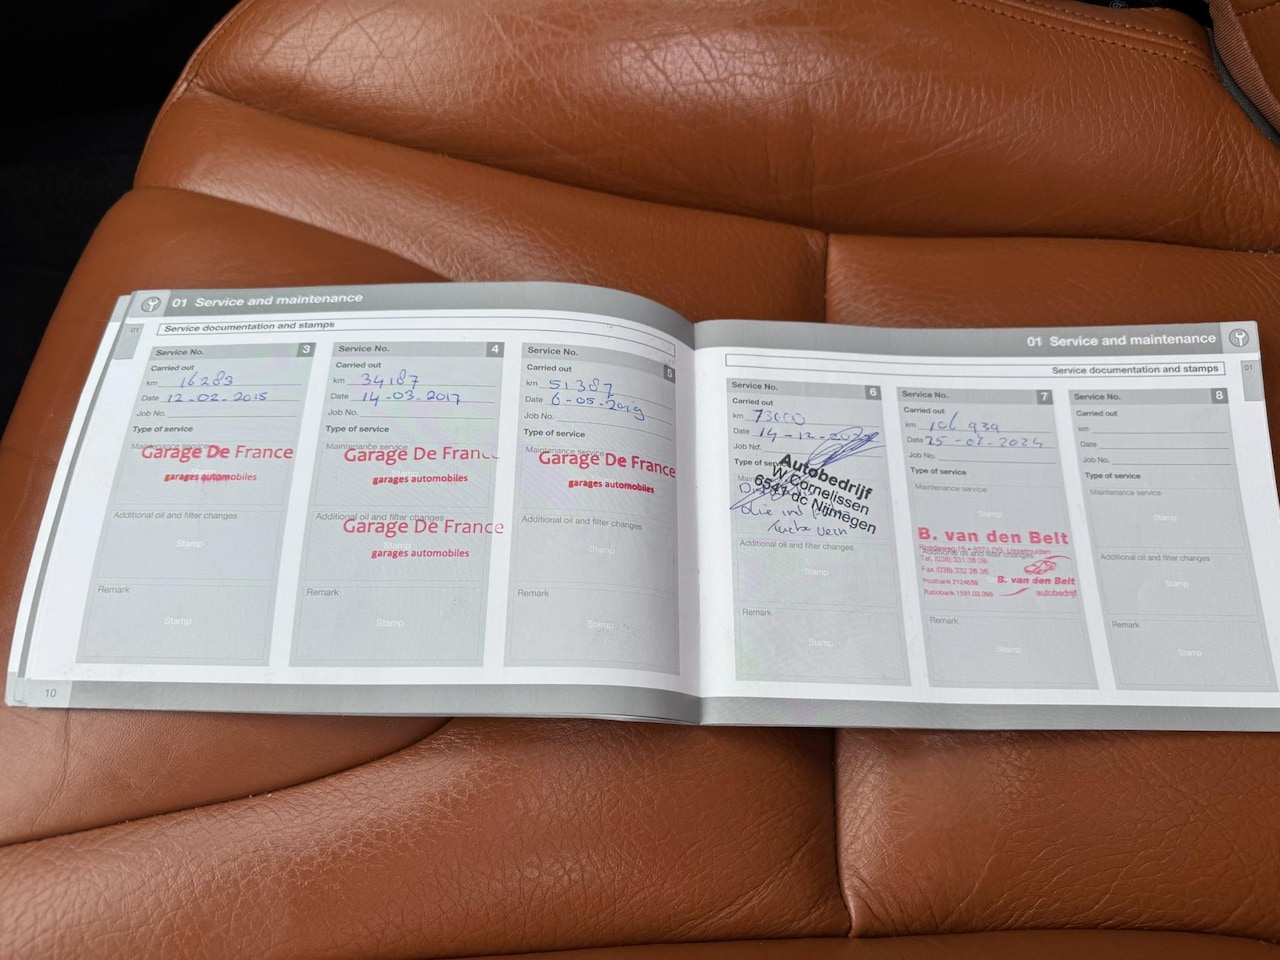 01 Service and maintenance
01
Service documentation and stamps
Service No. 3
Carried out
km 16283
Date 12-02-2015
Job No.
Type of service
Maintenance service
Garage De France
garages automobiles
Additional oil and filter changes
Stamp
Remark
Stamp
Service No. 4
Carried out
km 34187
Date 14-03-2017
Job No.
Type of service
Maintenance service
Stamp
Garage De Franc
garages automobiles
Additional oil and filter changes
Garage De France
garages automobiles
Remark
Stamp
Service No. 5
Carried out
km 51387
Date 6-05-2019
Job No.
Type of service
Maintenance service
Garage De France
garages automobiles
Additional oil and filter changes
Stamp
Remark
Stamp
10
01 Service and maintenance
01
Service documentation and stamps
Service No. 6
Carried out
km 73000
Date 14-12-
Job No.
Type of service
Autobedrijf
W. Cornelissen
dc Nijmegen
olie
Additional oil and filter changes
Stamp
Remark
Stamp
Service No. 7
Carried out
km 106 939
Date 25-07-2024
Job No.
Type of service
Maintenance service
Stamp
B. van den Belt
Additional oil and filter changes
Tel. (038) 331 38 09
Fax (038) 332 26 36
Postbank 2124638
B. van den Belt
Rabobank 1591.03.096
autobedrijf
Remark
Stamp
Service No. 8
Carried out
km
Date
Job No.
Type of service
Maintenance service
Stamp
Additional oil and filter changes
Stamp
Remark
Stamp